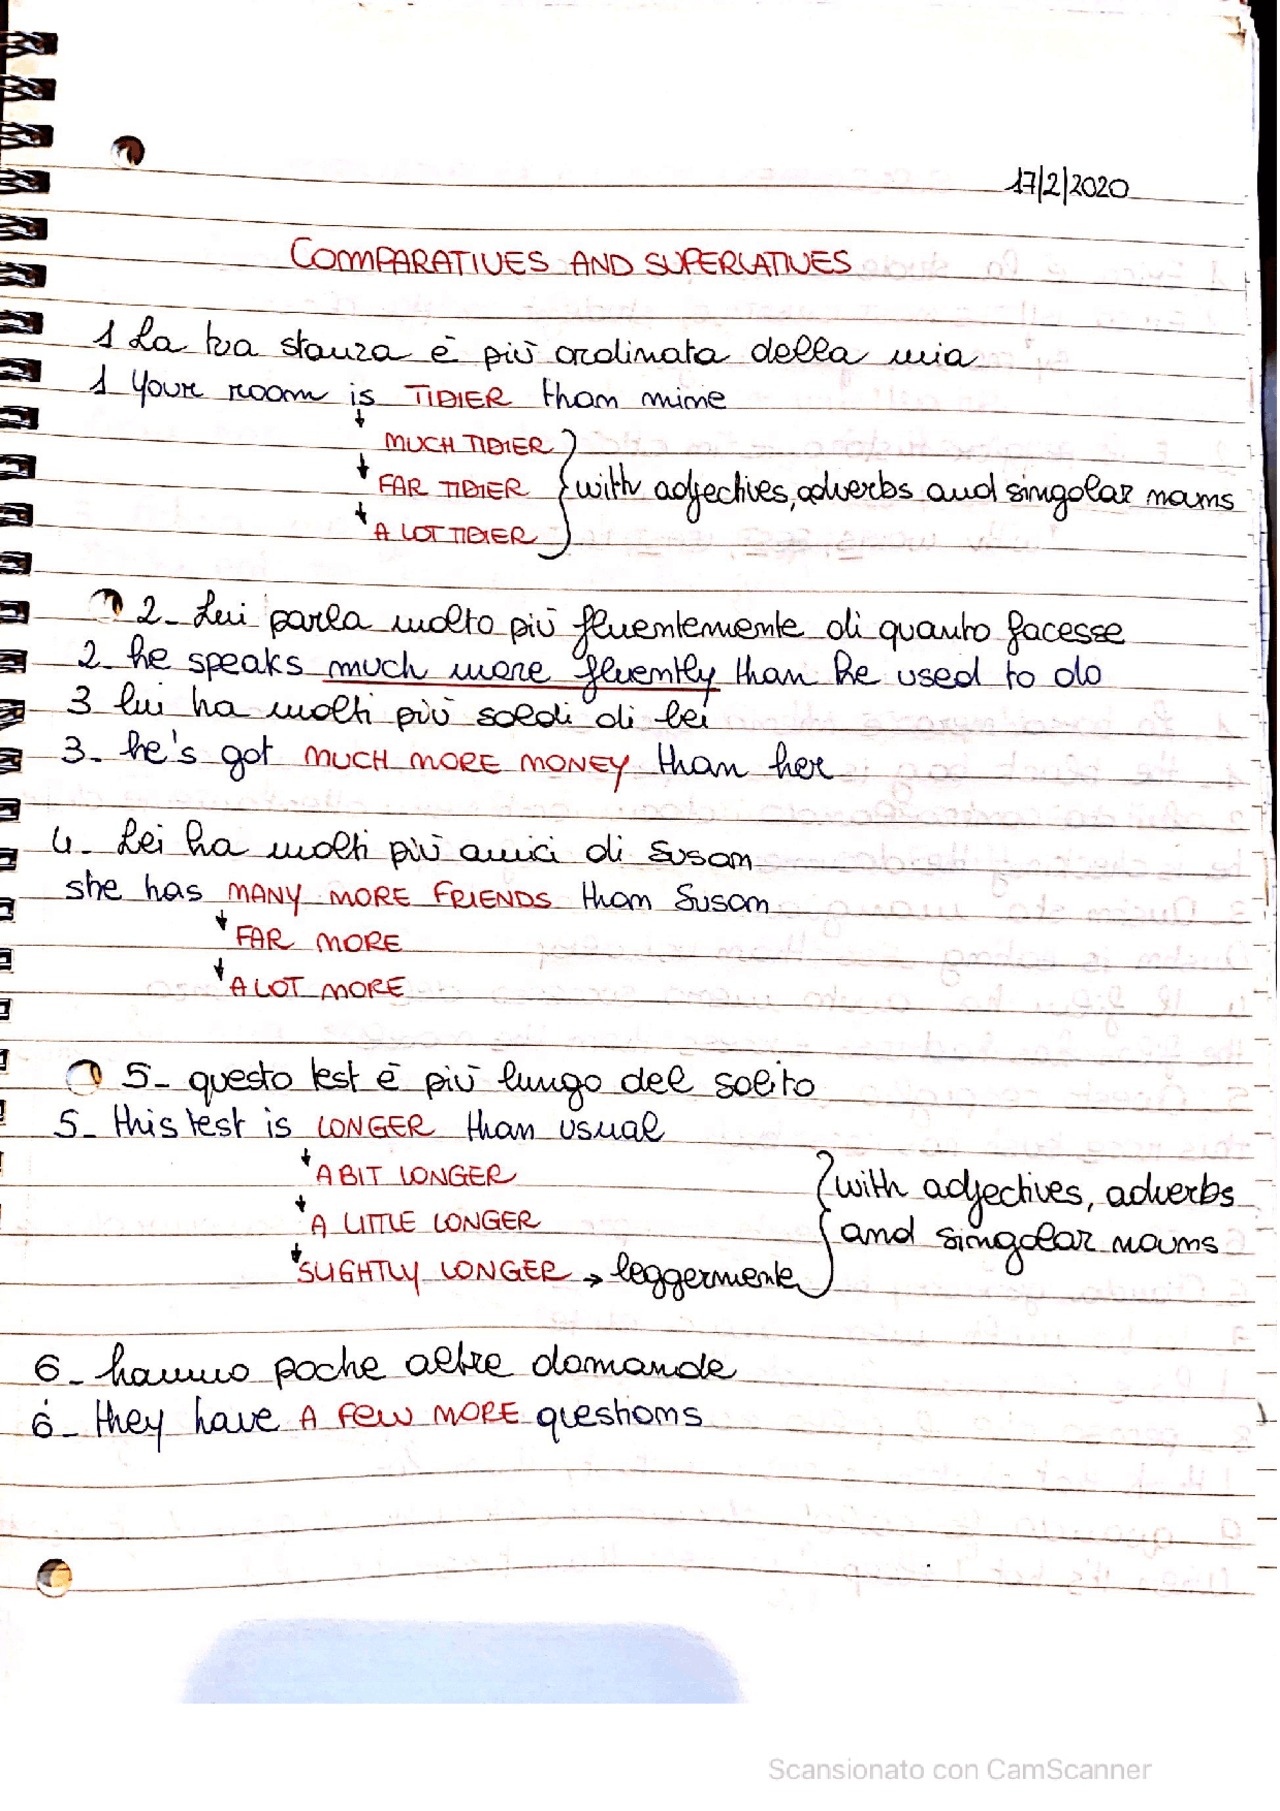 17/2/2020
COMPARATIVES AND SUPERLATIVES
1 La tua stanza è più ordinata della mia
1 Your room is TIDIER than mine
↓ MUCH TIDIER
↓ FAR TIDIER } with adjectives, adverbs and singolar nouns
↓ A LOT TIDIER
2- Lui parla molto più fluentemente di quanto facesse
2- he speaks much more fluently than he used to do
3 lui ha molti più soldi di lei
3- he's got MUCH MORE MONEY than her
4- Lei ha molti più amici di Susan
she has MANY MORE FRIENDS than Susan
↓ FAR MORE
↓ A LOT MORE
5- questo test è più lungo del solito
5- this test is LONGER than usual
↓ A BIT LONGER } with adjectives, adverbs
↓ A LITTLE LONGER and singolar nouns
↓ SLIGHTLY LONGER → leggermente
6- hanno poche altre domande
6- they have A FEW MORE questions
Scansionato con CamScanner